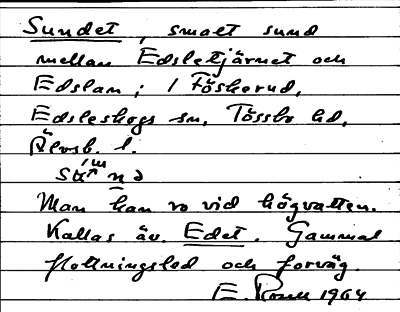 Sundet, smalt sund
mellan Edsletjärnet och
Edslan; i Föskerud,
Edsleskogs sn, Tössbo hd,
Älvsb. l.
Man kan ro vid högvatten.
Kallas äv. Edet. Gammal
flottningsled och forväg.
E. 1964